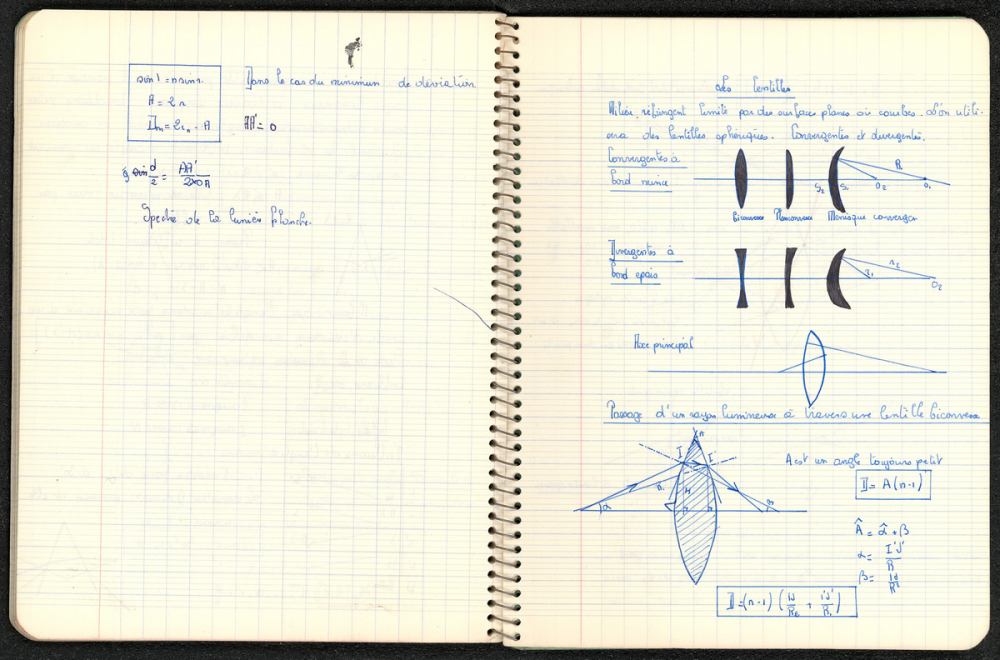 sin i = n sin r.
A = 2r
Dm = 2im - A
Dans le cas du minimun de déviation
AA' = 0
sin d/2 = AA'/2×OA
Spectre de la lumière blanche.
Les lentilles
Milieu réfringent limité par des surfaces planes ou courbes. L'on utili-
sera des lentilles sphériques. Convergentes et divergentes.
Convergentes à
bord mince
R1
S2 S1 O2 O1
Biconvexe Planconvexe Ménisque convergent
Divergentes à
bord epais
r2
r1
O2
Axe principal
Passage d'un rayon lumineux à travers une lentille biconvexe
A est un angle toujours petit
D = A(n-1)
A
I I'
H
α
Â = α̂ + β
α = I'J'/R
β = IJ/R'
D = (n-1) (IJ/R2 + I'J'/R1)